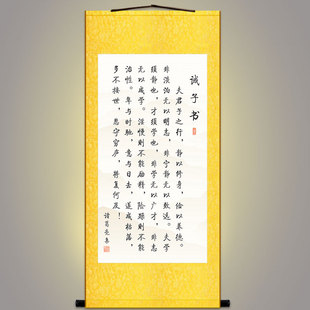 诫子书
夫君子之行，静以修身，俭以养德。
非淡泊无以明志，非宁静无以致远。夫学
须静也，才须学也，非学无以广才，非志
无以成学。淫慢则不能励精，险躁则不能
治性。年与时驰，意与日去，遂成枯落，
多不接世，悲守穷庐，将复何及！
诸葛亮